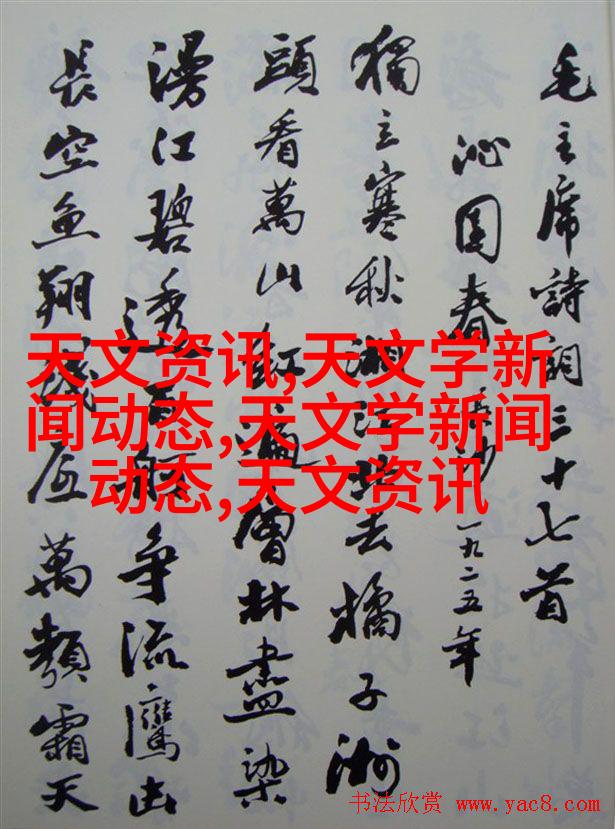 毛主席詩詞三十七首
沁園春 長沙 一九二五年
獨立寒秋湘江北去橘子洲
頭看萬山紅遍層林盡染
漫江碧透百舸争流鷹击
長空魚翔浅底萬類霜天
天文资讯,天文学新
闻动态,天文学新闻
动态,天文资讯
书法欣赏 www.yac8.com